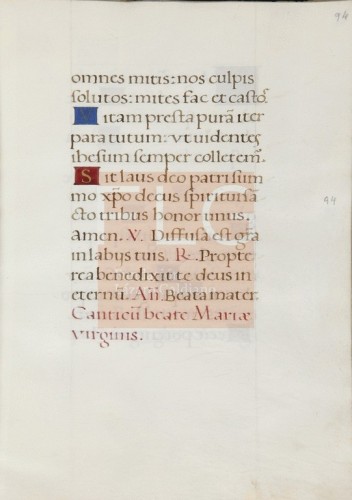 94
omnes mitis: nos culpis
solutos: mites fac et casto͂s.
Vitam presta purā iter
para tutum: vt uidentes
ihesum semper colletem̄.
Sit laus deo patri sum
mo xp̄o decus spiritui sā
cto tribus honor unus.
Amen. V. Diffusa est gr̄a
in labijs tuis. R. Propte
rea benedixit te deus in
eternū. Añ. Beata mater.
Canticū beate Mariæ
virginis.
94